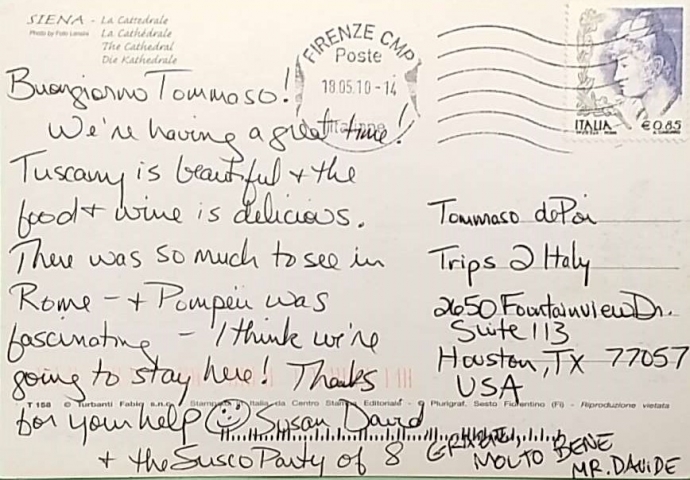 SIENA - La Cattedrale
La Cathédrale
The Cathedral
Die Kathedrale
FIRENZE CMP
Poste
18.05.10-14
Italiane
ITALIA € 0,85
Buongiorno Tommaso!
We're having a great time!
Tuscany is beautiful + the
food + wine is delicious.
There was so much to see in
Rome - + Pompeii was
fascinating - I think we're
going to stay here! Thanks
for your help ☺ Susan David
+ the Susco Party of 8
MOLTO BENE
MR. DAVIDE
Tommaso dePoi
Trips 2 Italy
2650 Fountainview Dr.
Suite 113
Houston, TX 77057
USA
T 158 © Turbanti Fabio s.n.c. Stampato in Italia da Centro Stampa Editoriale - © Plurigraf, Sesto Fiorentino (FI) - Riproduzione vietata